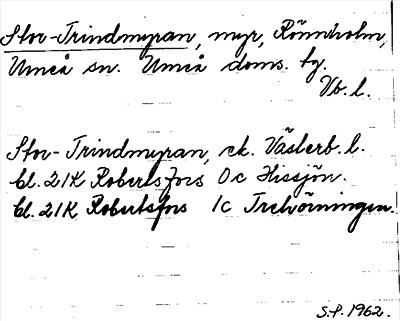 Stor-Trindmyran, myr, Rönnholm,
Umeå sn. Umeå doms. tg.
Vb. l.
Stor-Trindmyran, ek. Västerb. l.
bl. 21K Robertsfors 0c Hissjön.
bl. 21K Robertsfors 1c Trehörningen.
S.P. 1962.